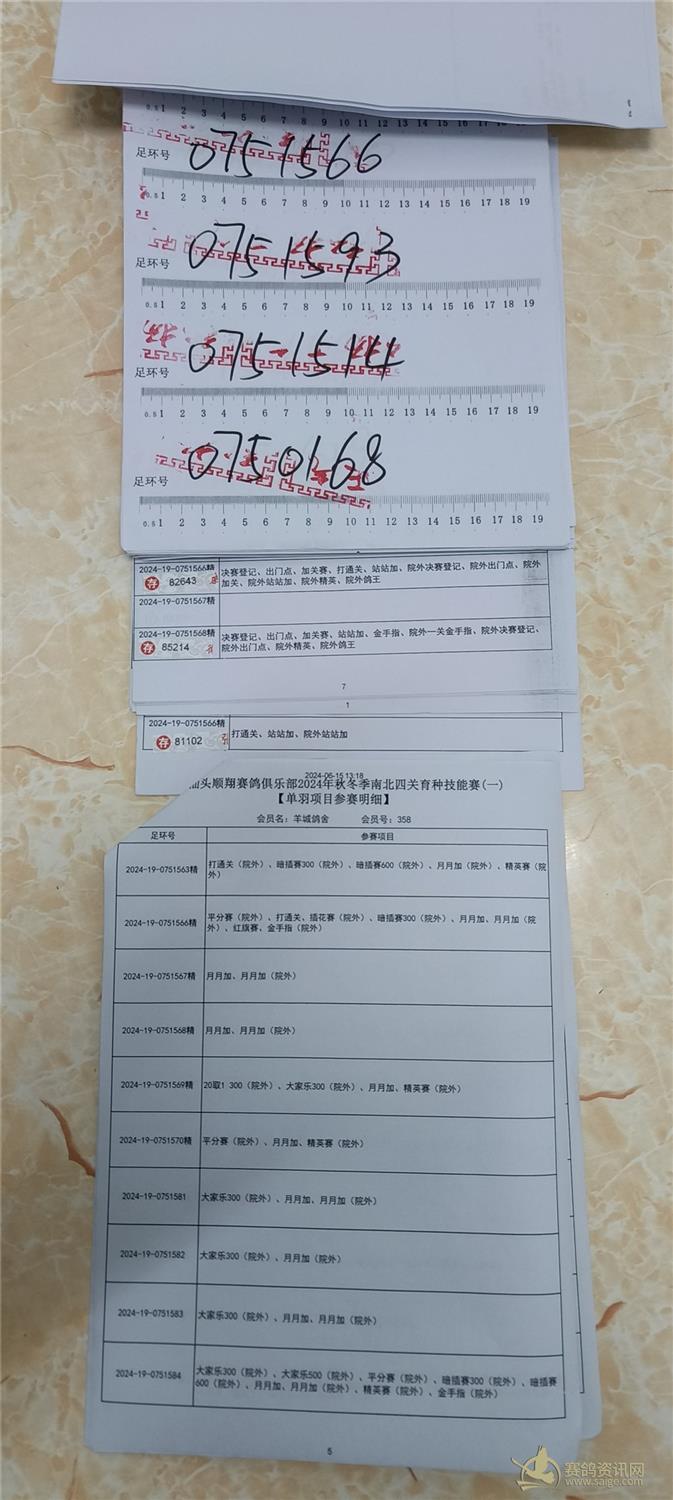 0.5 1 2 3 4 5 6 7 8 9 10 11 12 13 14 15 16 17 18 19
足环号 0751566
0.5 1 2 3 4 5 6 7 8 9 10 11 12 13 14 15 16 17 18 19
足环号 0751593
0.5 1 2 3 4 5 6 7 8 9 10 11 12 13 14 15 16 17 18 19
足环号 0751514
0.5 1 2 3 4 5 6 7 8 9 10 11 12 13 14 15 16 17 18 19
足环号 0750168
0.5 1 2 3 4 5 6 7 8 9 10 11 12 13 14 15 16 17 18 19
2024-19-0751566精 决赛登记、出门点、加关赛、打通关、站站加、院外决赛登记、院外出门点、院外
存 82643 加关、院外站站加、院外精英、院外鸽王
2024-19-0751567精
2024-19-0751568精 决赛登记、出门点、加关赛、站站加、金手指、院外一关金手指、院外决赛登记、
存 85214 院外出门点、院外精英、院外鸽王
7
1
2024-19-0751566精
存 81102 打通关、站站加、院外站站加
2024-06-15 13:18
汕头顺翔赛鸽俱乐部2024年秋冬季南北四关育种技能赛(一)
【单羽项目参赛明细】
会员名：羊城鸽舍 会员号：358
足环号 参赛项目
2024-19-0751563精 打通关（院外）、暗插赛300（院外）、暗插赛600（院外）、月月加（院外）、精英赛（院
外）
2024-19-0751566精 平分赛（院外）、打通关、插花赛（院外）、暗插赛300（院外）、月月加、月月加（院
外）、红旗赛、金手指（院外）
2024-19-0751567精 月月加、月月加（院外）
2024-19-0751568精 月月加、月月加（院外）
2024-19-0751569精 20取1 300（院外）、大家乐300（院外）、月月加、精英赛（院外）
2024-19-0751570精 平分赛（院外）、月月加、精英赛（院外）
2024-19-0751581 大家乐300（院外）、月月加、月月加（院外）
2024-19-0751582 大家乐300（院外）、月月加（院外）
2024-19-0751583 大家乐300（院外）、月月加、月月加（院外）
2024-19-0751584 大家乐300（院外）、大家乐500（院外）、平分赛（院外）、暗插赛300（院外）、暗插赛
600（院外）、月月加、月月加（院外）、精英赛（院外）、金手指（院外）
5
赛鸽资讯网
www.saige.com